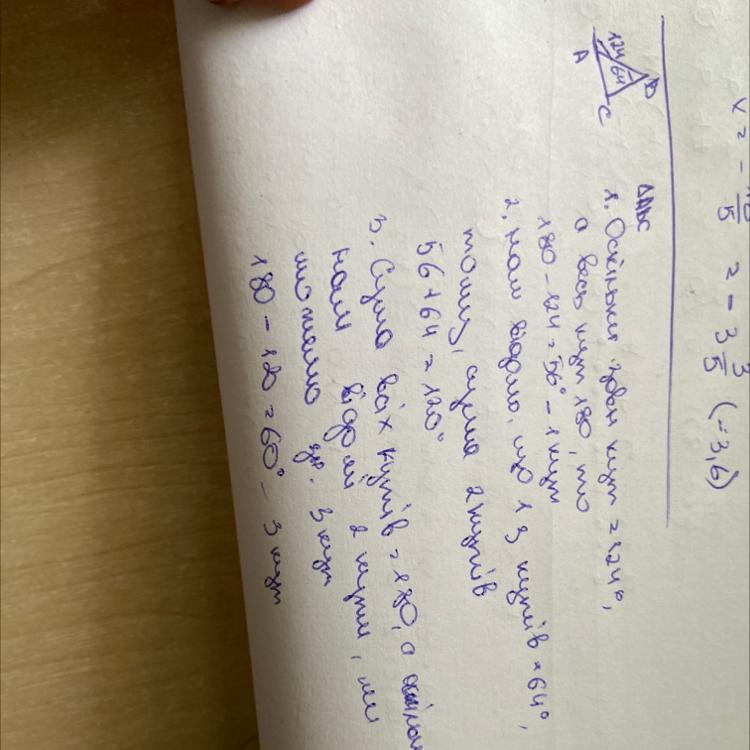 x = - 18/5 = - 3 3/5 (-3,6)
124 64
A B C
ΔABC
1. Оскільки зовн кут = 124°,
а весь кут 180, то
180 - 124 = 56° - 1 кут
2. Нам відомо, що 1 з кутів = 64°,
тому, сума 2 кутів
56 + 64 = 120°
3. Сума всіх кутів = 180, а
нам відомі 2 кути, ми
можемо 3 кут
180 - 120 = 60° - 3 кут